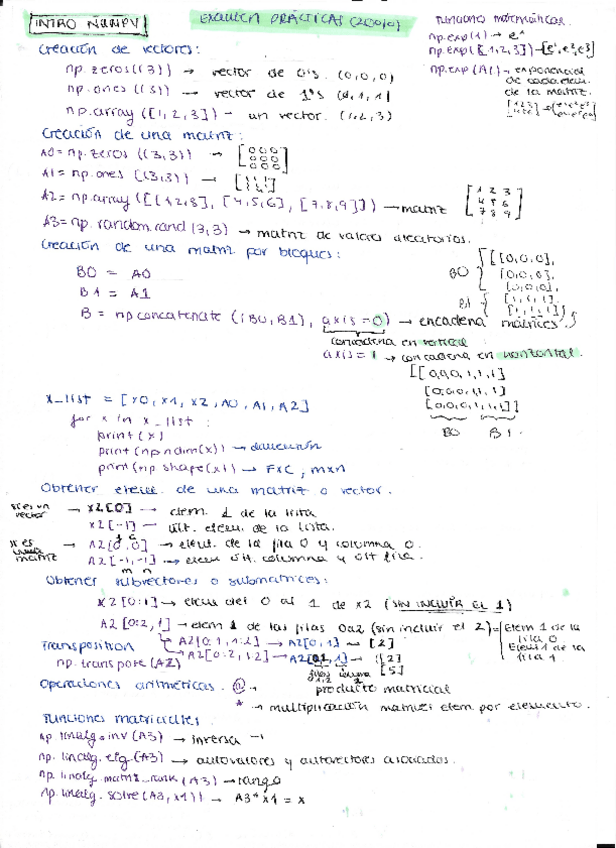 INTRO NUMPY
EXAMEN PRÁCTICAS
Creación de vectores:
np.zeros((3)) → vector de 0's. (0,0,0)
np.ones ((3)) → vector de 1's (1,1,1)
np.array ([1,2,3]) - un vector. (1,2,3)
Funciones matemáticas.
np.exp(1) → e¹
np.exp([1,2,3]) → [e¹,e²,e³]
np.exp(A1) → exponencial
de cada elem.
de la matriz.
Creación de una matriz:
A0 = np.zeros ((3,3)) →
[000
000
000]
A1 = np.ones ((3,3)) →
A2 = np.array([[1,2,3], [4,5,6], [7,8,9]]) → matriz
[1 2 3
4 5 6
7 8 9]
A3 = np.random.rand (3,3) → matriz de valores aleatorios.
Creación de una matriz por bloques:
B0 = A0
B1 = A1
B = np.concatenate ((B0,B1), axis=0) → encadena matrices.
B0 { [[0,0,0],
[0,0,0],
[0,0,0],
B1 { [1,1,1],
[1,1,1]
concadena en vertical
axis = 1 → concadena en horizontal.
[[0,0,0,1,1,1]
[0,0,0,1,1,1]
[0,0,0,1,1,1]]
B0 B1
x_list = [x0, x1, x2, A0, A1, A2]
for x in x_list :
print (x)
print (np.ndim(x)) → dimensión
print (np.shape(x)) → FxC, mxn
Obtener elem. de una matriz o vector.
si es un vector → x2[0] → elem. 1 de la lista
x2[-1] → últ. elem. de la lista.
si es una matriz → A2[0,0] → elem. de la fila 0 y columna 0.
A2[-1,-1] → elem últ. columna y últ fila.
m n
Obtener subvectores o submatrices:
x2[0:1] → elem del 0 al 1 de x2 (SIN INCLUIR EL 1)
A2[0:2,1] → elem 1 de las filas 0 a 2 (sin incluir el 2) =
Elem 1 de la
fila 0.
Elem 1 de la
fila 1.
Transposition
A2[0:1,1:2] → A2[0,1] → [2]
A2[0:2,1:2] → → [2]
[5]
np.transpose(A2)
Operaciones aritméticas. @ → producto matricial
* → multiplicación matriz elem por elemento.
Funciones matriciales
np.linalg.inv (A3) → inversa ⁻¹
np.linalg.eig (A3) → autovalores y autovectores asociados.
np.linalg.matrix_rank (A3) → rango
np.linalg.solve (A3, x1)) → A3*x1 = x